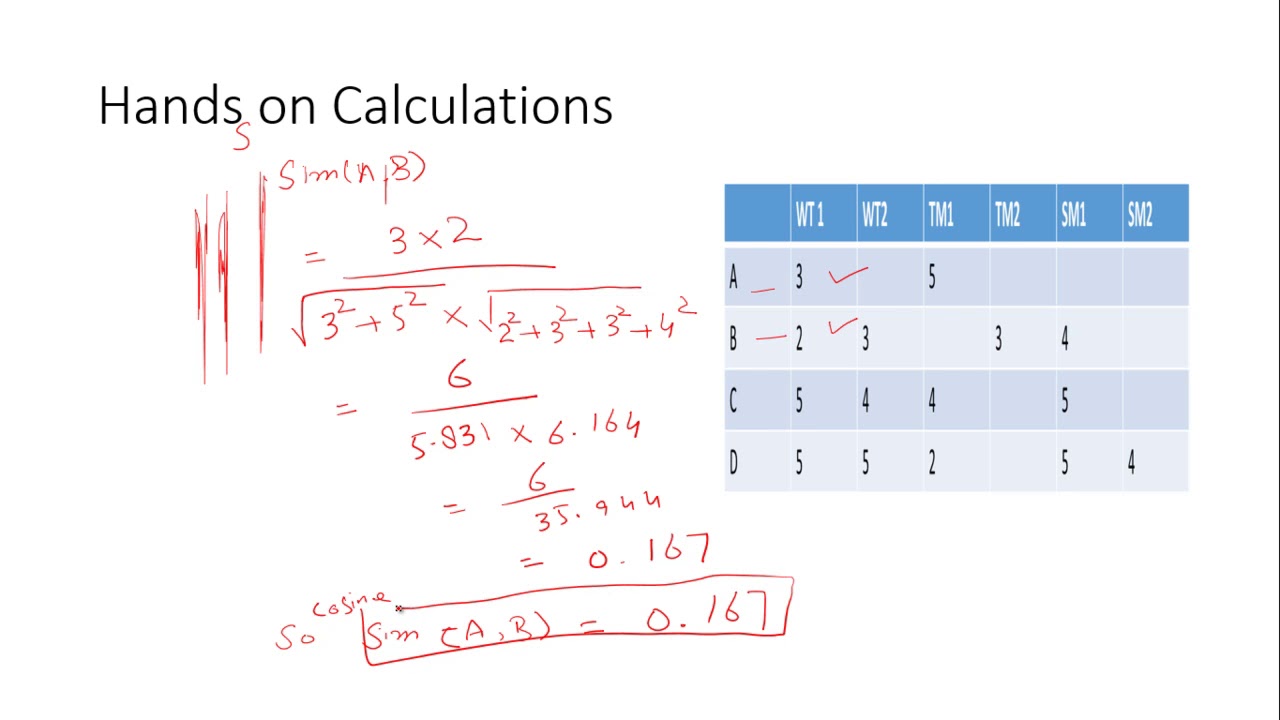 Hands on Calculations
S
Sim(A,B)
= 3 × 2
√3²+5² × √2²+3²+3²+4²
= 6
5.831 × 6.164
= 6
35.944
= 0.167
So cosine Sim (A,B) = 0.167
WT 1 WT2 TM1 TM2 SM1 SM2
A 3 5
B 2 3 3 4
C 5 4 4 5
D 5 5 2 5 4